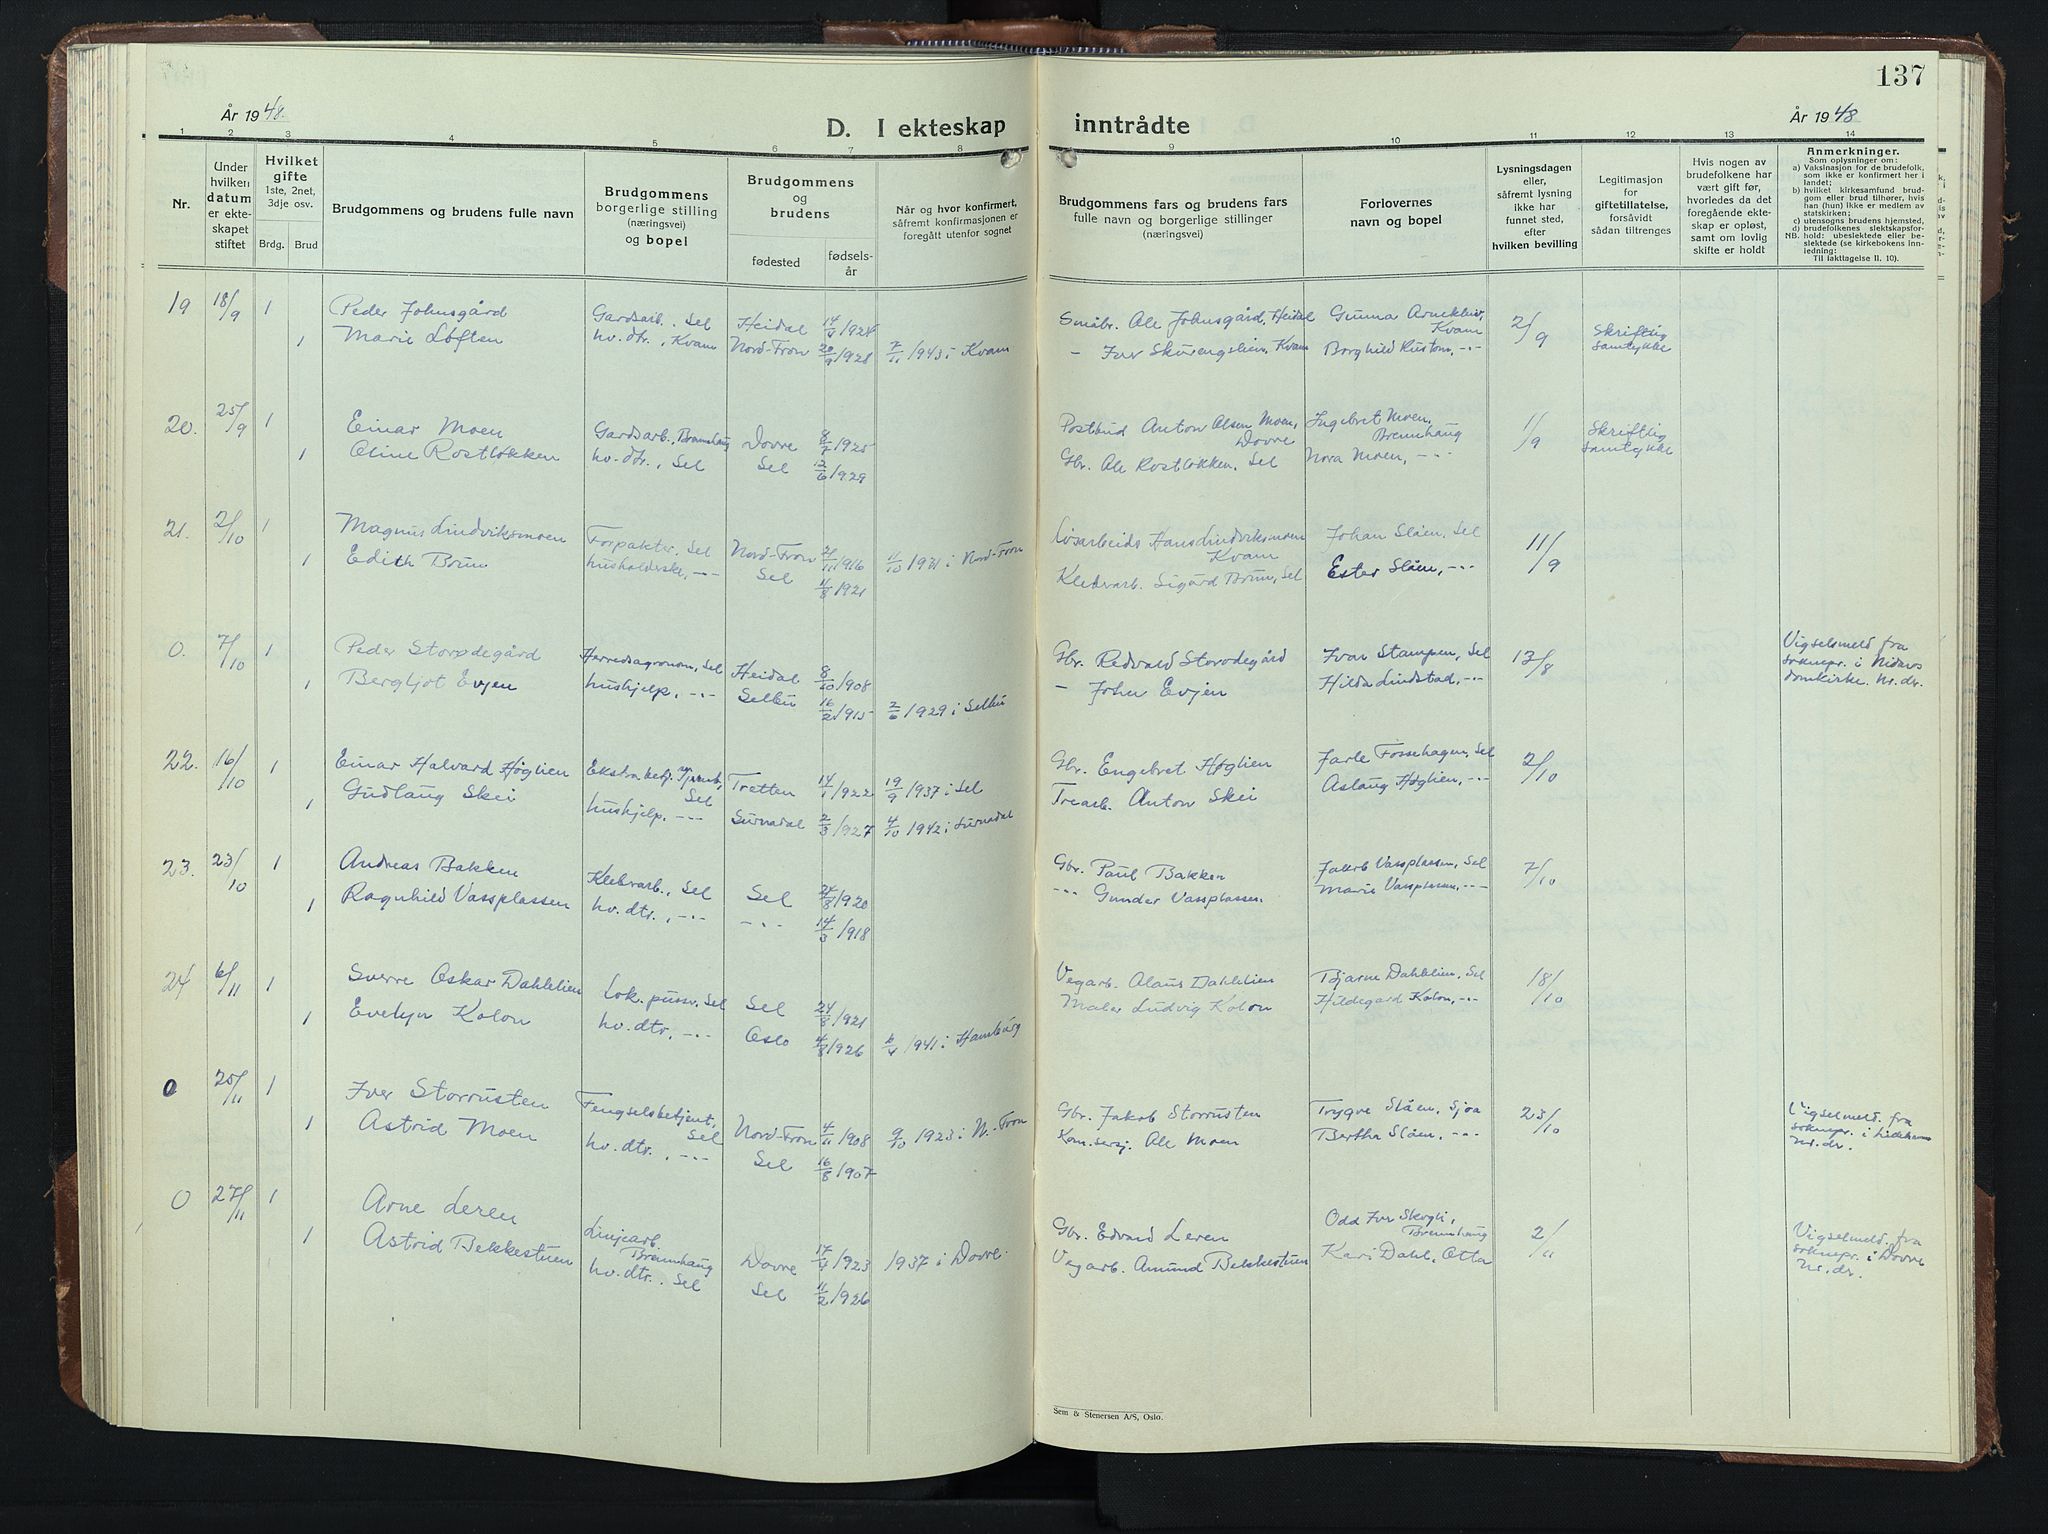 137
År 1948.
År 1948
D. I ekteskap inntrådte
1 2 3 4 5 6 7 8 9 10 11 12 13 14
Nr.
Under hvilken datum er ekteskapet stiftet
Hvilket gifte 1ste, 2net, 3dje osv.
Brdg. Brud
Brudgommens og brudens fulle navn
Brudgommens borgerlige stilling (næringsvei) og bopel
Brudgommens og brudens
fødested
fødselsår
Når og hvor konfirmert, såfremt konfirmasjonen er foregått utenfor sognet
Brudgommens fars og brudens fars fulle navn og borgerlige stillinger (næringsvei)
Forlovernes navn og bopel
Lysningsdagen eller, såfremt lysning ikke har funnet sted, efter hvilken bevilling
Legitimasjon for giftetillatelse, forsåvidt sådan tiltrenges
Hvis nogen av brudefolkene har vært gift før, hvorledes da det foregående ekteskap er opløst, samt om lovlig skifte er holdt
Anmerkninger.
Som oplysninger om:
a) Vaksinasjon for de brudefolk, som ikke er konfirmert her i landet;
b) hvilket kirkesamfund brudgom eller brud tilhører, hvis han (hun) ikke er medlem av statskirken;
c) utensogns brudens hjemsted,
d) brudefolkenes slektskapsforhold: ubeslektede eller beslektede (se kirkebokens innledning:
NB. Til iakttagelse II. 10).
19 18/9 1 Peder Johnsgård Gardsarb., Sel Heidal 14/4 1924 Småbr. Ole Johnsgård, Heidal Gunna Arnekleiv, Kvam 2/9 Skriftlig samtykke
1 Marie Løften hv.dtr., Kvam Nord-Fron 20/9 1928 7/11 1943 i Kvam - Iver Skurengslien, Kvam Borghild Rustom, -"-
20. 25/9 1 Einar Moen Gardsarb., Brennhaug Dovre 8/7 1925 Postbud Anton Olsen Moen, Dovre Ingebret Moen, Brennhaug 11/9 Skriftlig samtykke
1 Oline Rostløkken hv.dtr., Sel Sel 12/6 1929 Gbr. Ole Rostløkken, Sel Nora Moen, -"-
21. 2/10 1 Magnus Lindviksmoen Forpakter, Sel Nord-Fron 21/11 1916 11/10 1931 i Nord-Fron Løsarbeids Hans Lindviksmoen Kvam Johan Slåen, Sel 11/9
1 Edith Brun husholdske, -"- Sel 11/8 1921 Klebvarb. Sigurd Brun, Sel Ester Slåen, -"-
0. 7/10 1 Peder Storødegård Herredsagronom, Sel Heidal 8/10 1908 Gbr. Redvald Storodegård Ivar Stampen, Sel 13/8 Vigselsmeld fra soknepr. i Nidaros domkirke. Nr. dr.
1 Bergljot Evjen hushjelp, -"- Selbu 16/2 1915 2/6 1929 i Selbu - John Evjen Hilda Lindstad, -"-
22. 16/10 1 Einar Halvard Høglien Ekstrabetj. Sel Tretten 14/1 1922 19/9 1937 i Sel Gbr. Engebret Høglien Jarle Fossehagen, Sel 2/10
1 Gudlaug Skei hushjelp, -"- Surnadal 2/3 1927 4/10 1942 i Surnadal Trearb. Anton Skei Aslaug Høglien, -"-
23. 23/10 1 Andreas Bakken Klebvarb., Sel Sel 24/8 1920 Gbr. Paul Bakken Jakob Vassplassen, Sel 7/10
1 Ragnhild Vassplassen hv.dtr., -"- -"- 14/3 1918 -"- Gunder Vassplassen. Marie Vassplassen, -"-
24 6/11 1 Sverre Oskar Dahlelien Lok.pussr. Sel Sel 24/8 1921 Vegarb. Olaus Dahlelien Bjarne Dahlelien, Sel 18/10
1 Evelyn Kolon hv.dtr., -"- Oslo 4/8 1926 6/4 1941 i Hamburg Maler Ludvig Kolon Hildegard Kolon, -"-
0 25/11 1 Iver Storrusten Fengselsbetjent, Sel Nord-Fron 4/11 1908 9/10 1923 i N.-Fron Gbr. Jakob Storrusten Trygve Slåen, Sjoa 23/10 Vigselmeld. fra soknepr. i Nr. dr.
1 Astrid Moen hv.dtr., -"- Sel 16/8 1907 Kom.sersj. Ole Moen Bertha Slåen, -"-
0 27/11 1 Arne Leren Linjearb. Brennhaug Dovre 17/4 1923 1937 i Dovre. Gbr. Edvard Leren Odd Iver Skogli, Brennhaug 2/11 Vigselmeld. fra soknepr. i Dovre Nr. dr.
1 Astrid Bekkestuen hv.dtr., Sel Sel 11/2 1926 Vegarb. Amund Bekkestuen Kari Dahl, Otta
Sem & Stenersen A/S, Oslo.